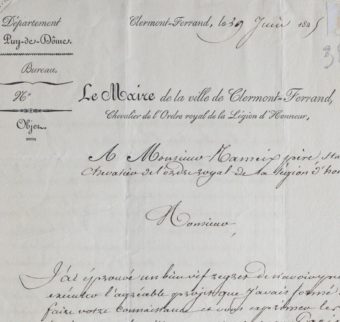 Département
Puy-de-Dôme.
Clermont-Ferrand, le 29 Juin 184
Bureau.
N°
Objet
Le Maire de la ville de Clermont-Ferrand,
Chevalier de l'Ordre royal de la Légion d'Honneur,
A Monsieur père,
Chevalier de l'ordre royal de la Légion d'hon
Monsieur,
J'ai éprouvé un bien vif regret de n'avoir
l'agréable que j'avais formé
faire votre connaissance et vous exprimer les